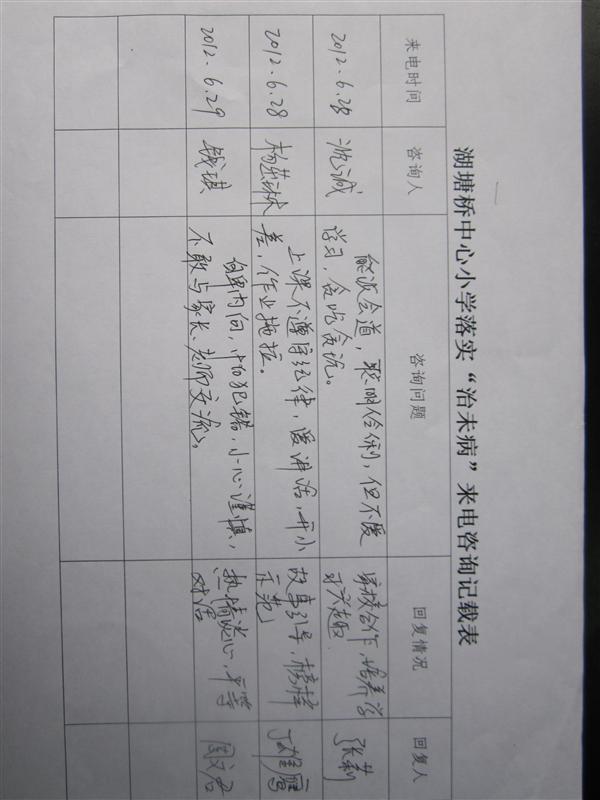 湖塘桥中心小学落实“治未病”来电咨询记载表
来电时间 咨询人 咨询问题 回复情况 回复人
2012.6.28 沈诚 能说会道，聪明伶俐，但不爱 家校合作，培养学
学习，贪吃贪玩。 习兴趣 张莉
2012.6.28 上课不遵守纪律，爱讲话，开小 故事引导，榜样
差，作业拖拉。 示范
2012.6.29 钱琪 自卑内向，怕犯错，小心谨慎， 热情谈心，平等
不敢与家长、老师交流。 对话